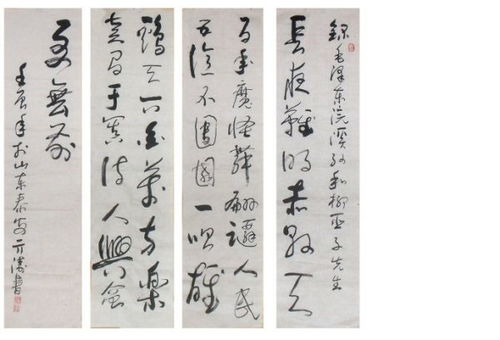 錄毛澤东浣溪纱和柳亚子先生
長夜難明赤县天
百年魔怪舞翩躚人民
五億不團圆一唱雄
鷄天下白萬方樂
奏有于窴诗人興會
更無前
年於山东泰安亓书